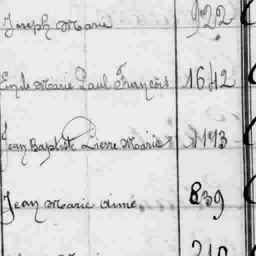 Joseph Marie 922
Emile Marie Paul François 1642
Jean Baptiste Pierre Marie 1193
Jean Marie Aimé 839